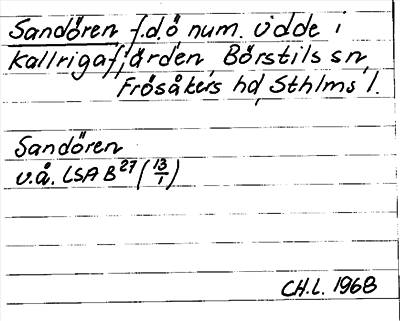 Sandören f.d.ö num. udde i
Kallrigafjärden, Börstils sn,
Frösåkers hd, Sthlms l.
Sandören
u.å. LSA B27 (13/1)
CH.L. 1968